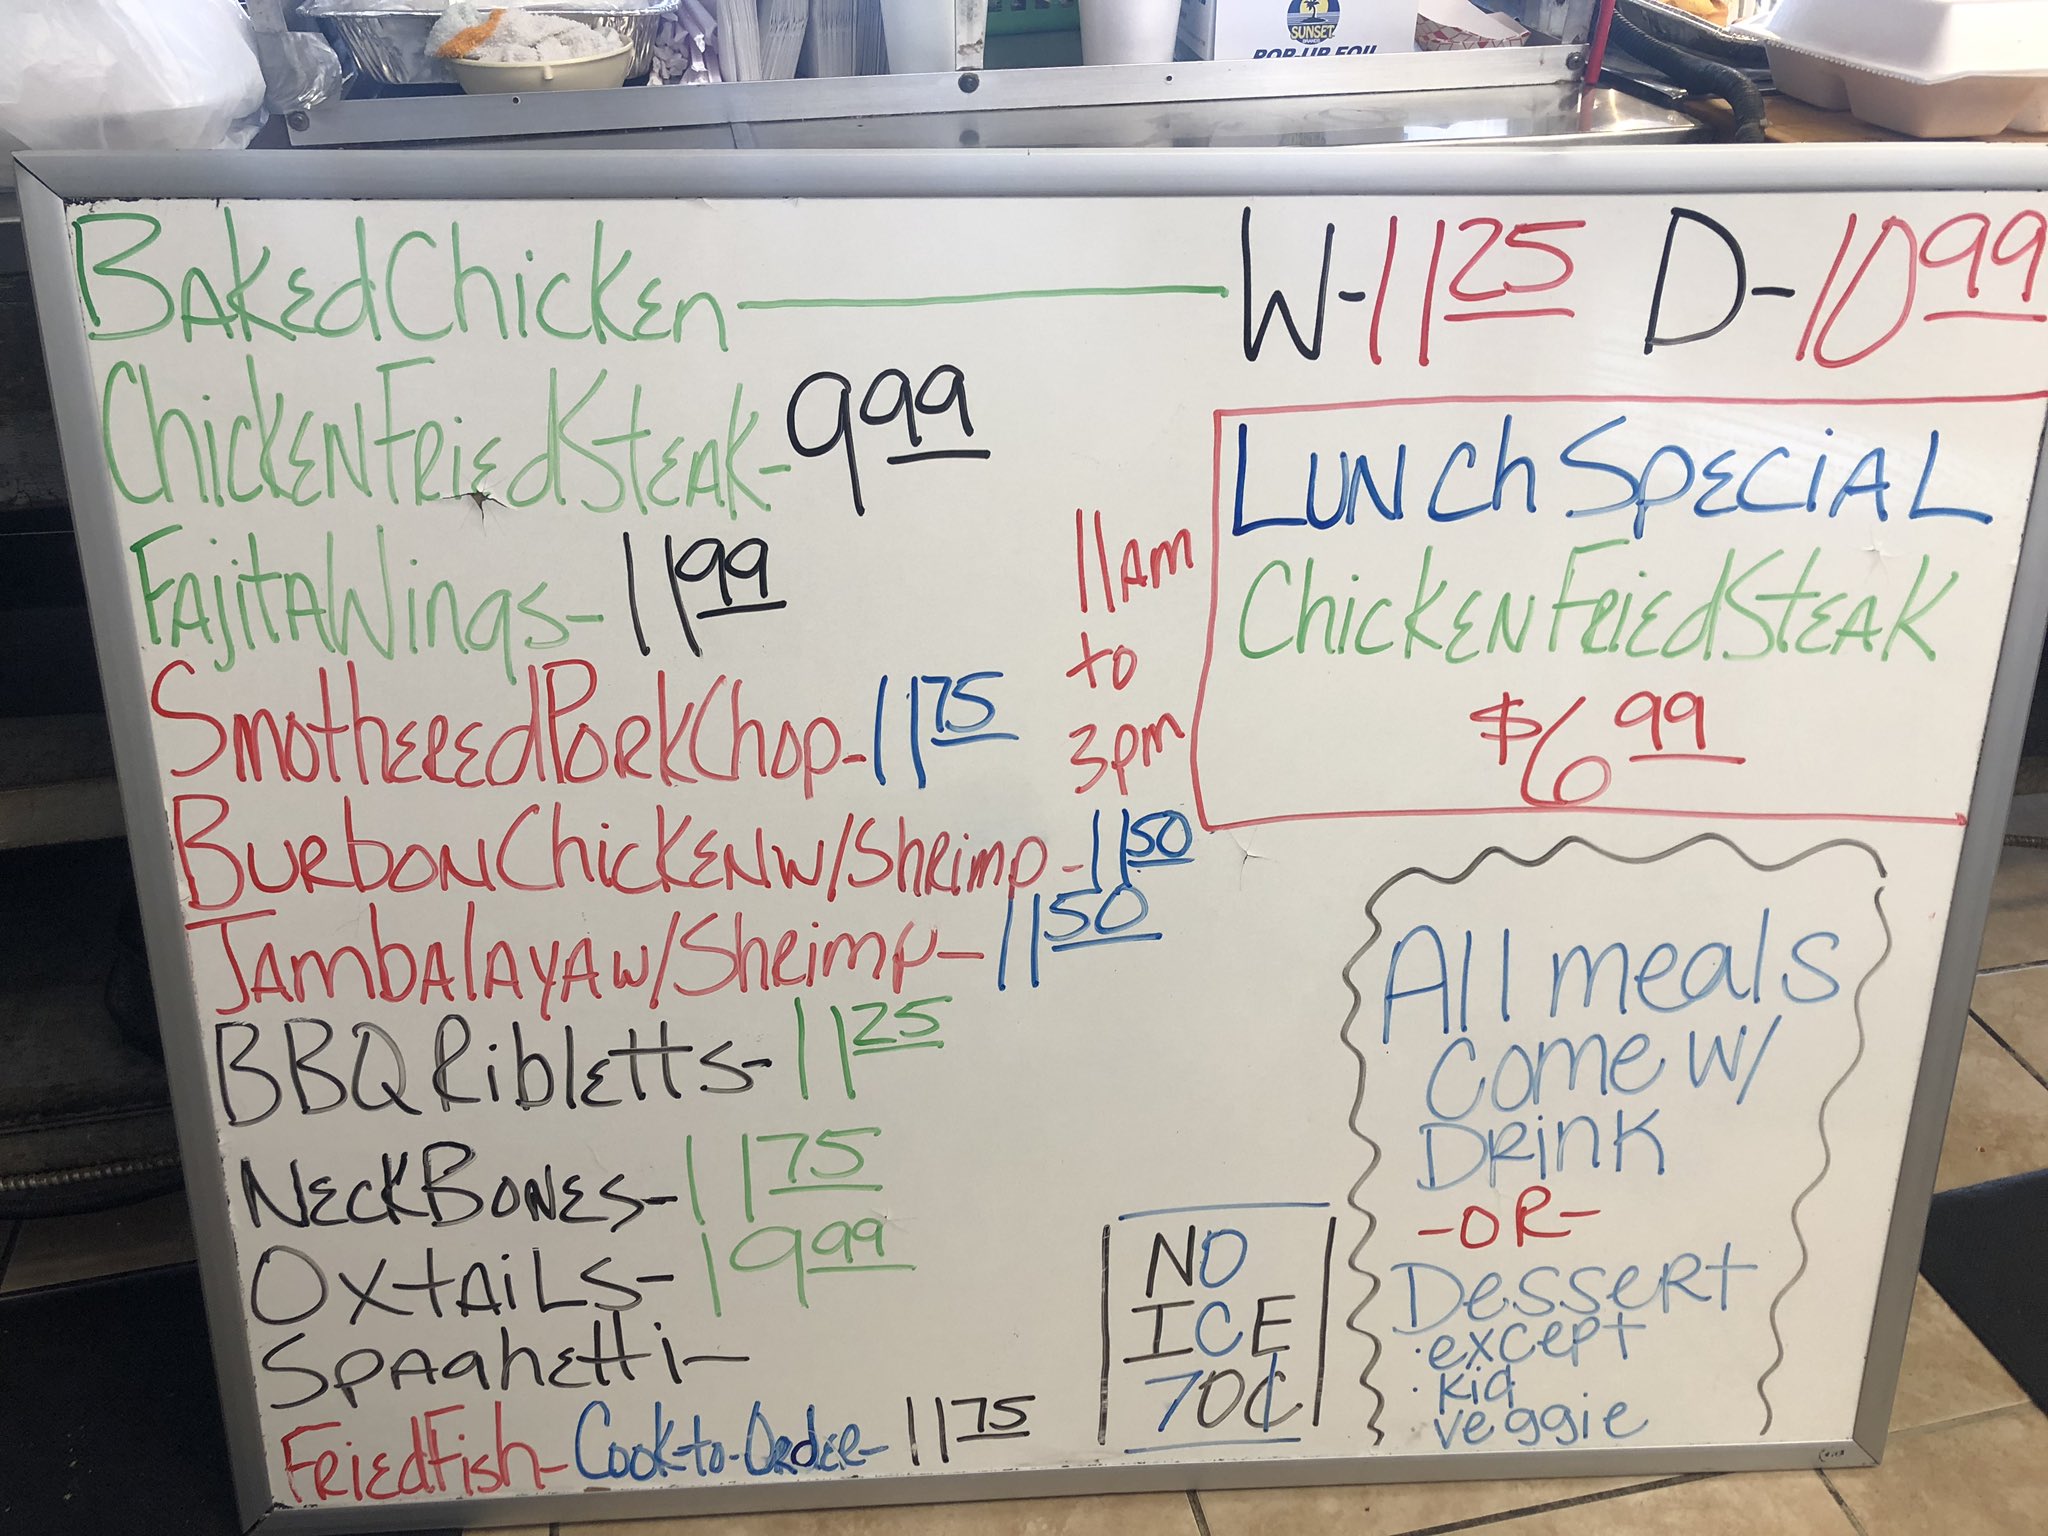 SUNSET
POP-UP FOIL
Baked Chicken W-11.25 D-10.99
Chicken Fried Steak-9.99
Fajita Wings-11.99
Smothered Pork Chop-11.75
Burbon Chicken w/Shrimp-11.50
Jambalaya w/Shrimp-11.50
BBQ Ribletts-11.25
Neck Bones-11.75
Oxtails-19.99
Spaghetti-
Fried Fish-Cook-to-Order-11.75
11am
to
3pm
Lunch Special
Chicken Fried Steak
$6.99
All meals
come w/
Drink
-OR-
Dessert
·except
·kid
veggie
NO
ICE
70¢